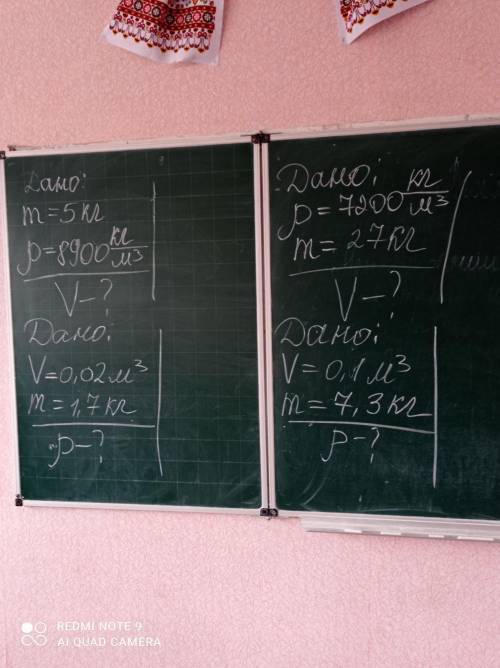 Дано:
m = 5 кг
ρ = 8900 кг/м³
V – ?
Дано:
V = 0,02 м³
m = 1,7 кг
ρ – ?
Дано:
ρ = 7200 кг/м³
m = 27 кг
V – ?
Дано:
V = 0,1 м³
m = 7,3 кг
ρ – ?
REDMI NOTE 9
AI QUAD CAMERA